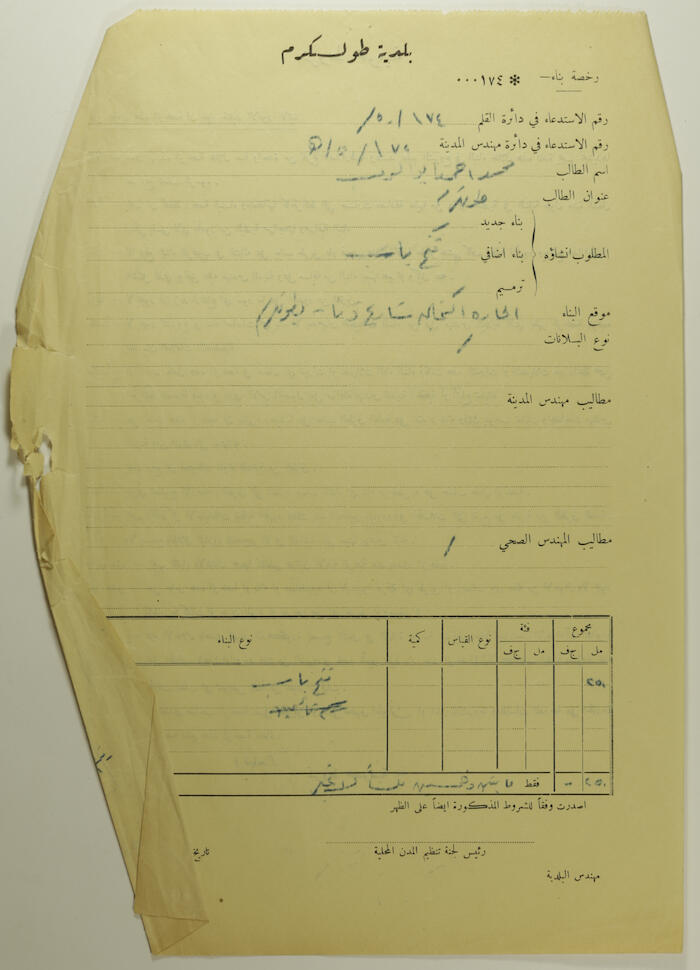 بلدية طولكرم
رخصة بناء — * ٠٠٠١٧٤
رقم الاستدعاء في دائرة القلم ١٧٤/٥٠/
رقم الاستدعاء في دائرة مهندس المدينة
اسم الطالب محمد احمد
عنوان الطالب طولكرم
بناء جديد
المطلوب انشاؤه بناء اضافي فتح باب
ترميم
موقع البناء الحاره شارع طولكرم
نوع البلاتات /
مطاليب مهندس المدينة
مطاليب المهندس الصحي /
مجموع فئة نوع القياس كمية نوع البناء
مل ج‌ف مل ج‌ف
٢٥٠ فتح باب
٢٥٠ - فقط مايتين وخمسين ملا لا غير
اصدرت وفقاً للشروط المذكورة ايضاً على الظهر
رئيس لجنة تنظيم المدن المحلية تاريخ
مهندس البلدية